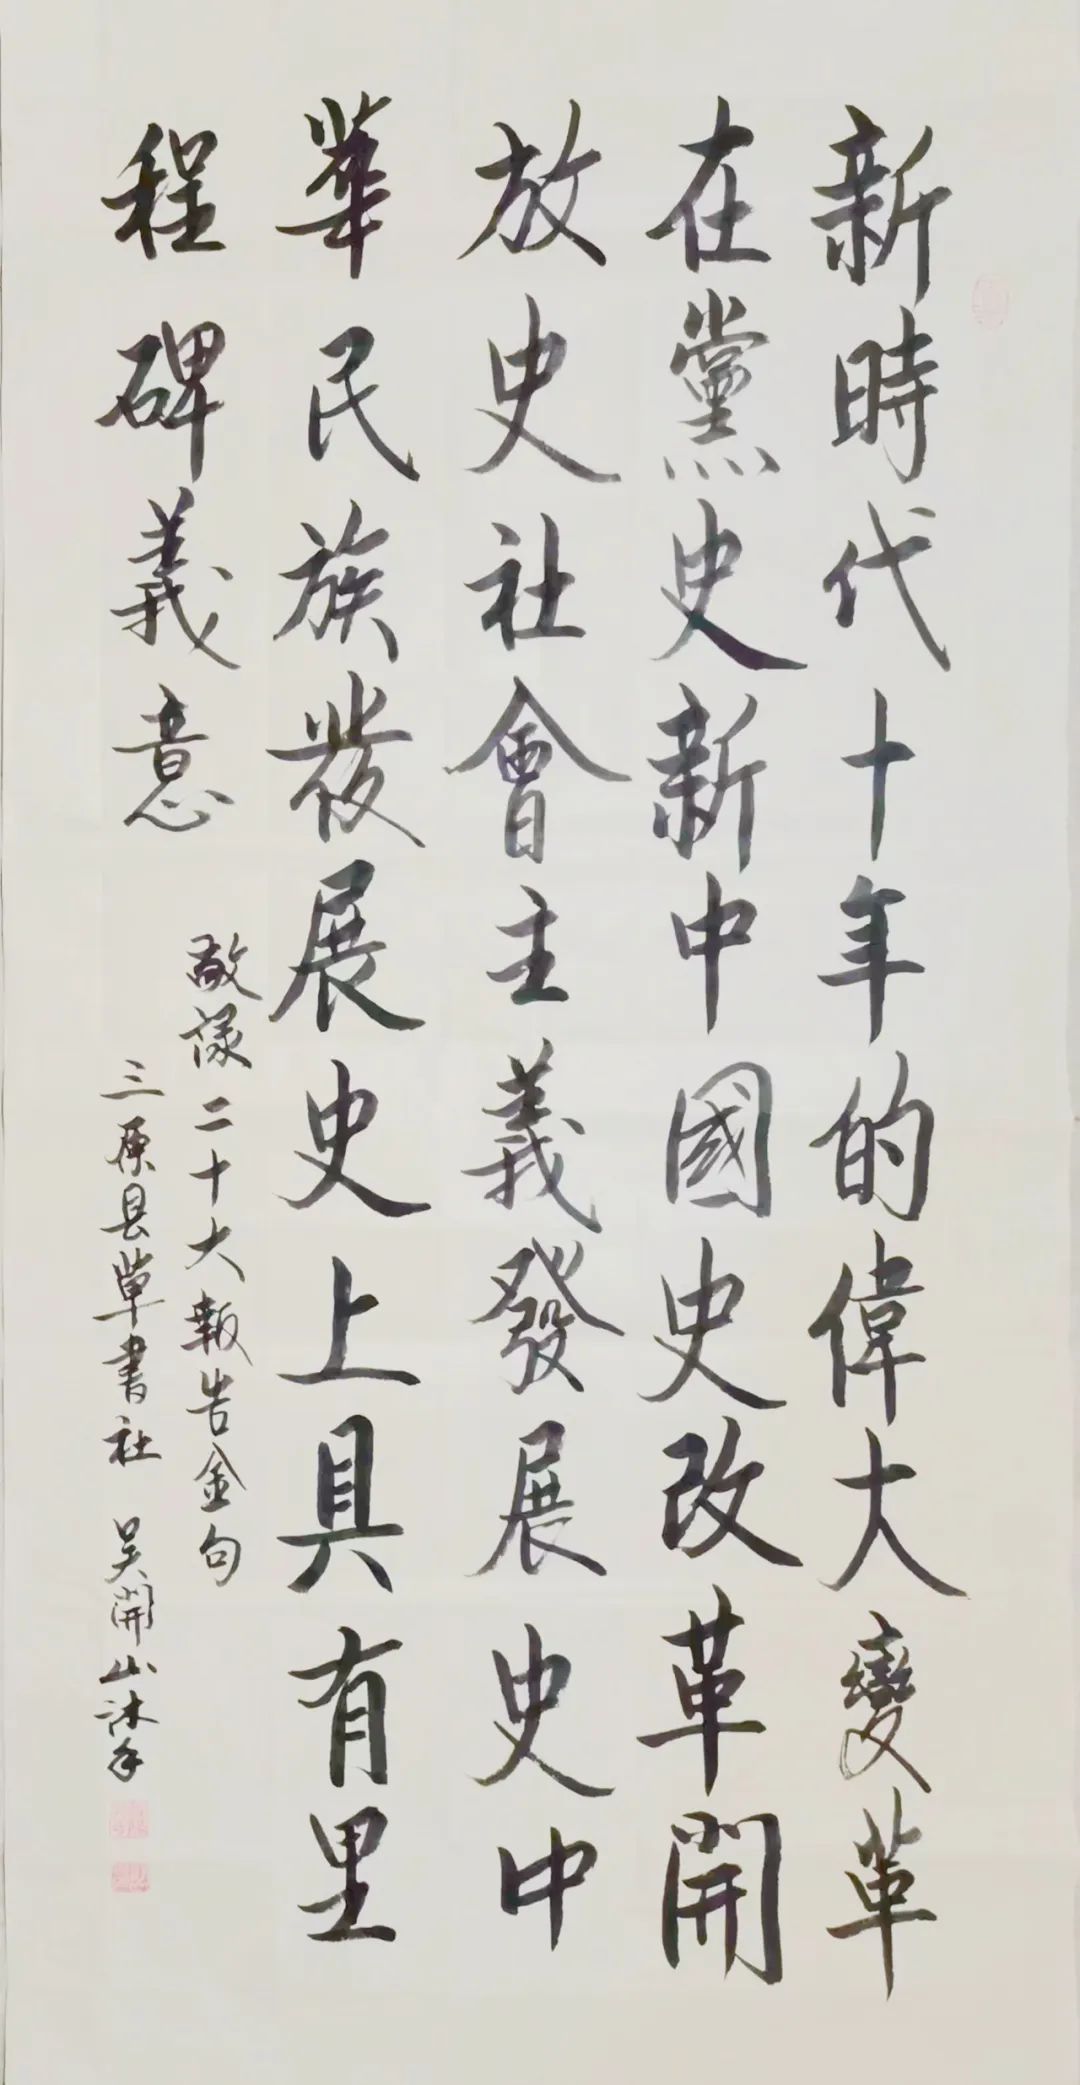 新時代十年的偉大變革
在黨史新中國史改革開
放史社會主義發展史中
華民族發展史上具有里
程碑義意
敬録二十大報告金句
三原县草書社 吴開山沐手